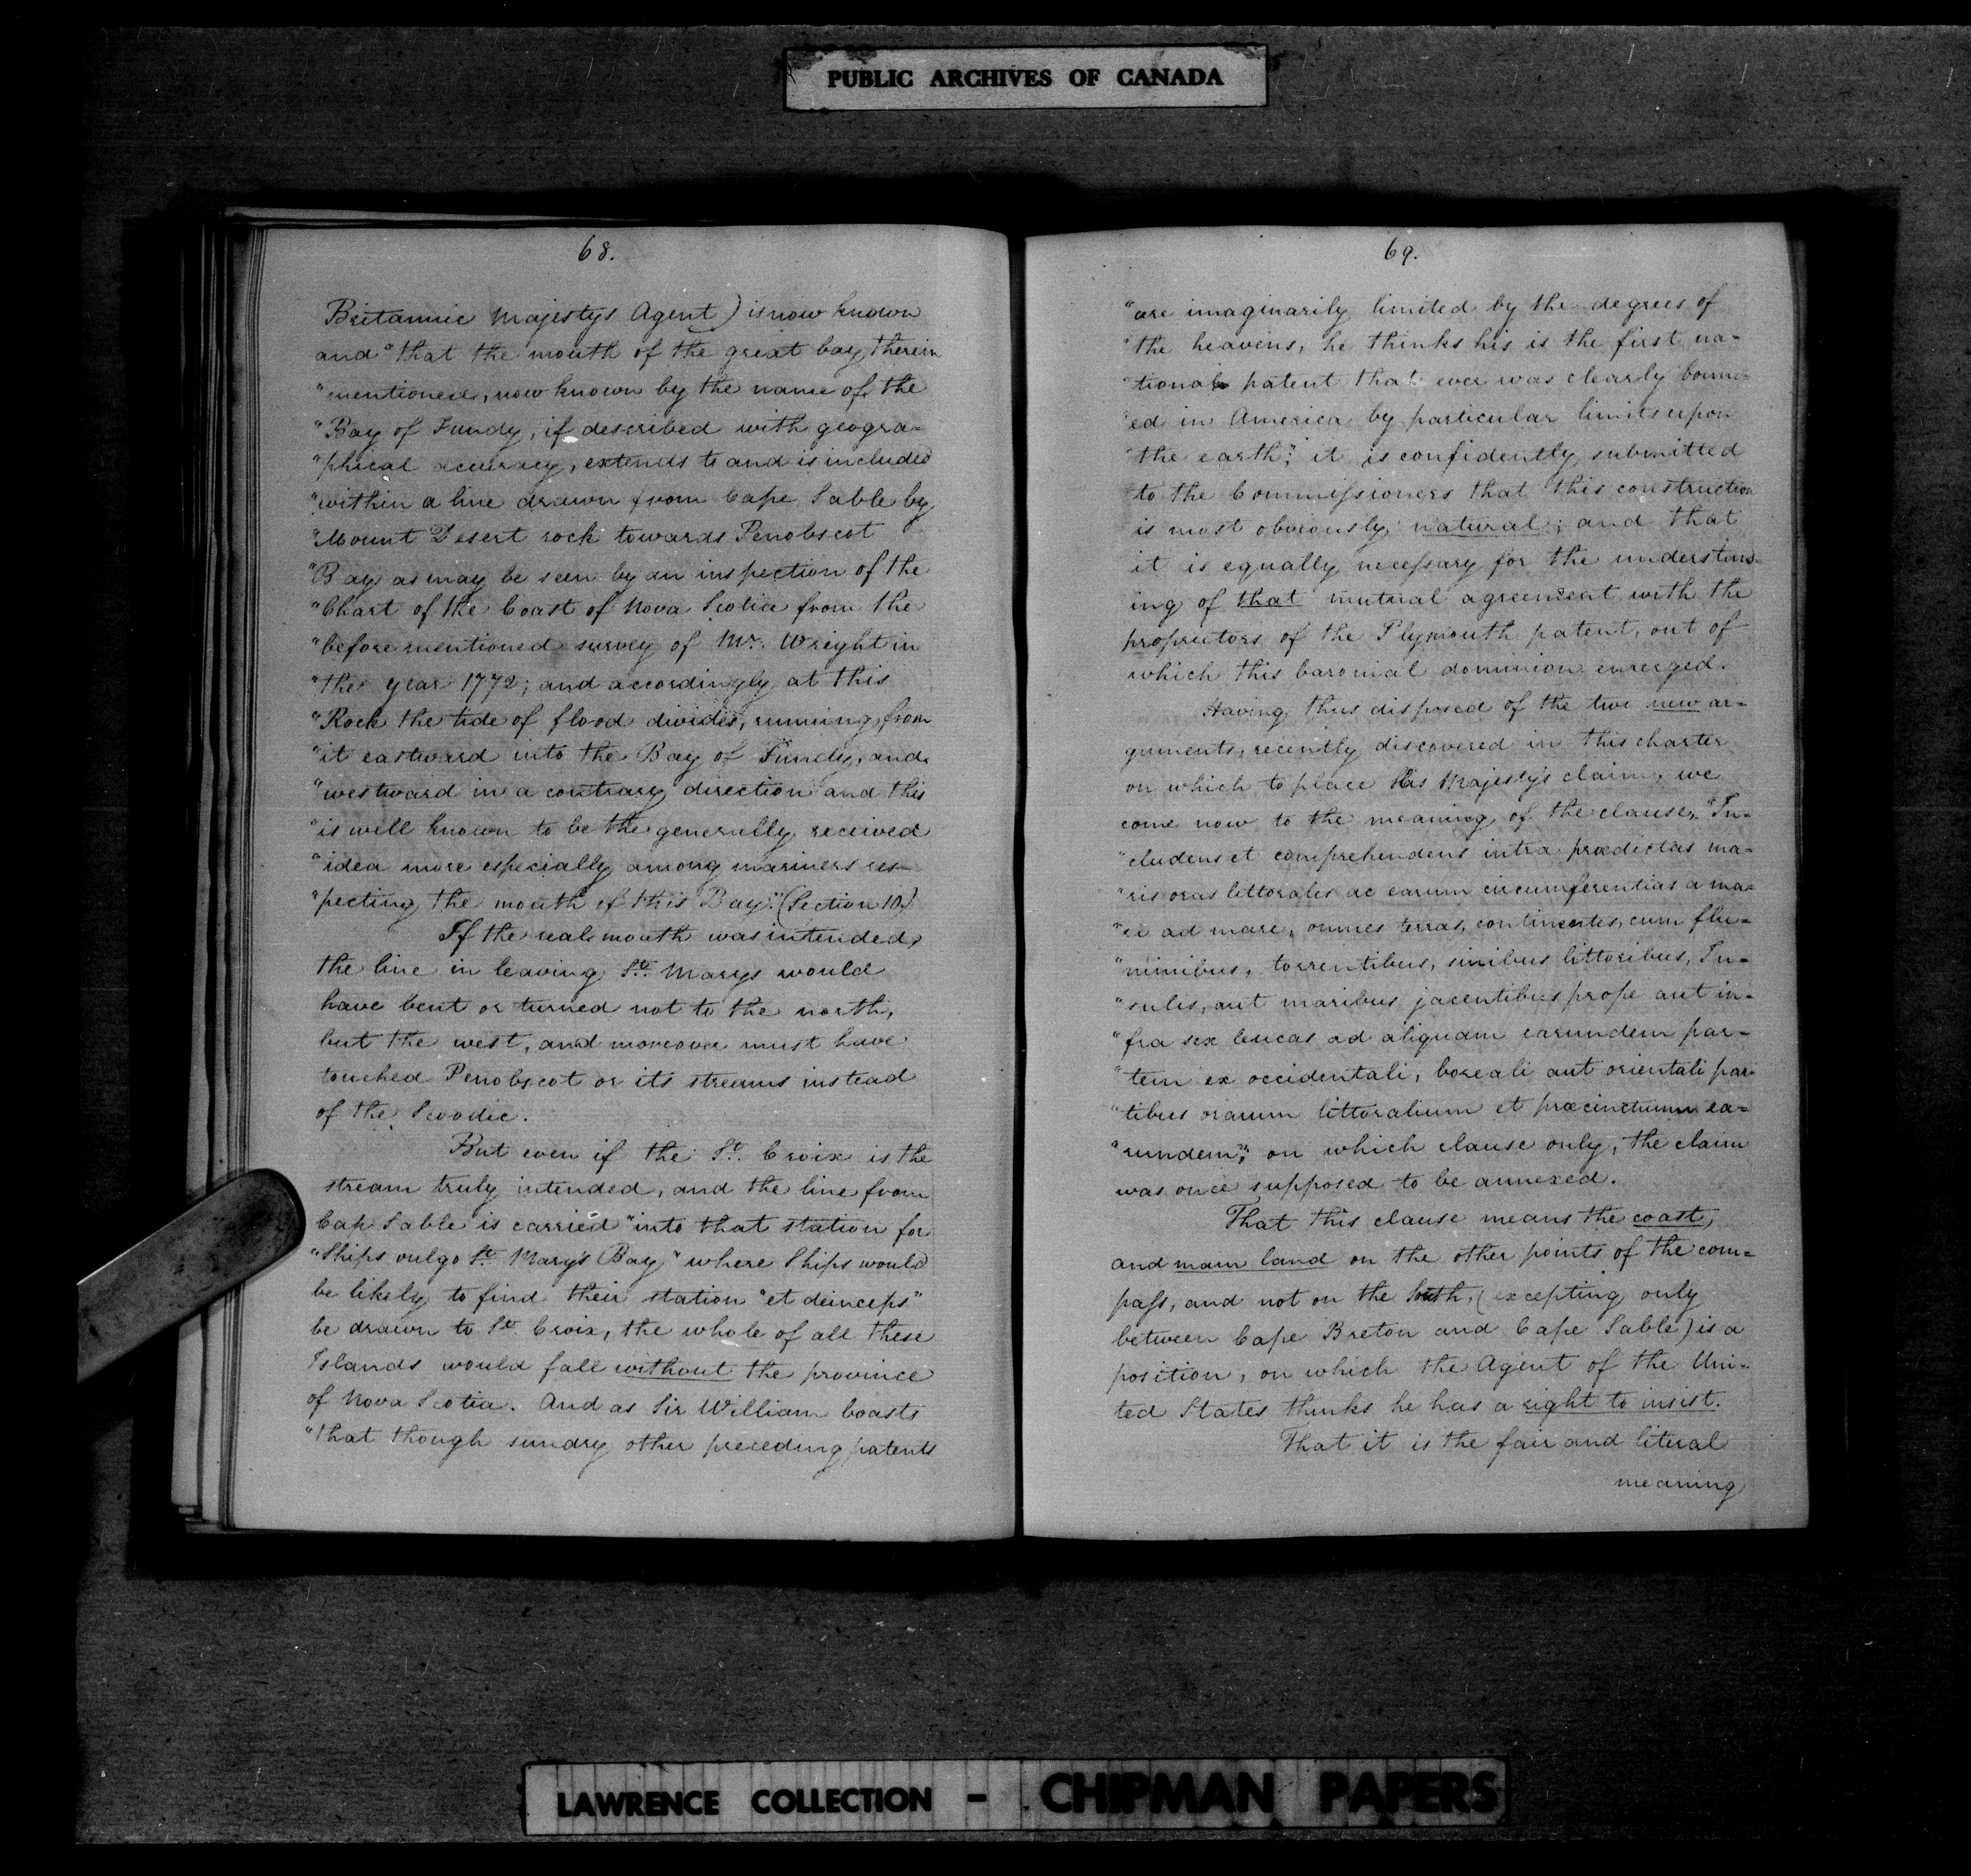 PUBLIC ARCHIVES OF CANADA
68.
Britannic Majestys Agent) is now known
and "that the mouth of the great bay therein
"mentioned, now known by the name of the
"Bay of Fundy, if described with geogra=
"phical accuracy, extends to and is included
"within a line drawn from Cape Sable by
"Mount Desert rock towards Penobscot
"Bay as may be seen by an inspection of the
"Chart of the Coast of Nova Scotia from the
"before mentioned survey of Mr. Wright in
"the year 1772; and accordingly at this
"Rock the tide of flood divides, running from
"it eastward into the Bay of Fundy, and
"westward in a contrary direction and this
"is well known to be the generally received
"idea more especially among mariners res-
"pecting the mouth of this Bay". (Section 10.)
If the real mouth was intended,
the line in leaving St. Marys would
have bent or turned not to the north,
but the west, and moreover must have
touched Penobscot or its streams instead
of the Scoodic.
But even if the St. Croix is the
stream truly intended, and the line from
Cap Sable is carried "into that station for
"Ships vulgo St. Mary's Bay" where Ships would
be likely to find their station "et deinceps"
be drawn to St. Croix, the whole of all these
Islands would fall without the province
of Nova Scotia. And as Sir William boasts
"that though sundry other preceding patents
69.
"are imaginarily limited by the degrees of
"the heavens, he thinks his is the first na=
"tional patent that ever was clearly bound=
"ed in America by particular limits upon
"the earth"; it is confidently submitted
to the Commissioners that this construction
is most obviously natural; and that
it is equally necessary for the understand-
ing of that mutual agreement with the
proprietors of the Plymouth patent, out of
which this baronial dominion emerged.
Having thus disposed of the two new ar=
guments, recently discovered in this charter
on which to place His Majesty's claim, we
come now to the meaning of the clause, "In=
"cludens et comprehendens intra prædictas ma=
"ris oras littorales ac earum circumferentias a ma=
"ri ad mare, omnes terras, continentes, cum flu=
"minibus, torrentibus, sinibus littoribus, In=
"sulis, aut maribus jacentibus prope aut in=
"fra sex leucas ad aliquam earundem par=
"tem ex occidentali, boreali aut orientali par=
"tibus orarum littoralium et præcinctuum ea=
"rundem", on which clause only, the claim
was once supposed to be annexed.
That this clause means the coast,
and main land on the other points of the com=
pass, and not on the South, (excepting only
between Cape Breton and Cape Sable) is a
position, on which the Agent of the Uni=
ted States thinks he has a right to insist.
That it is the fair and literal
meaning
LAWRENCE COLLECTION - CHIPMAN PAPERS